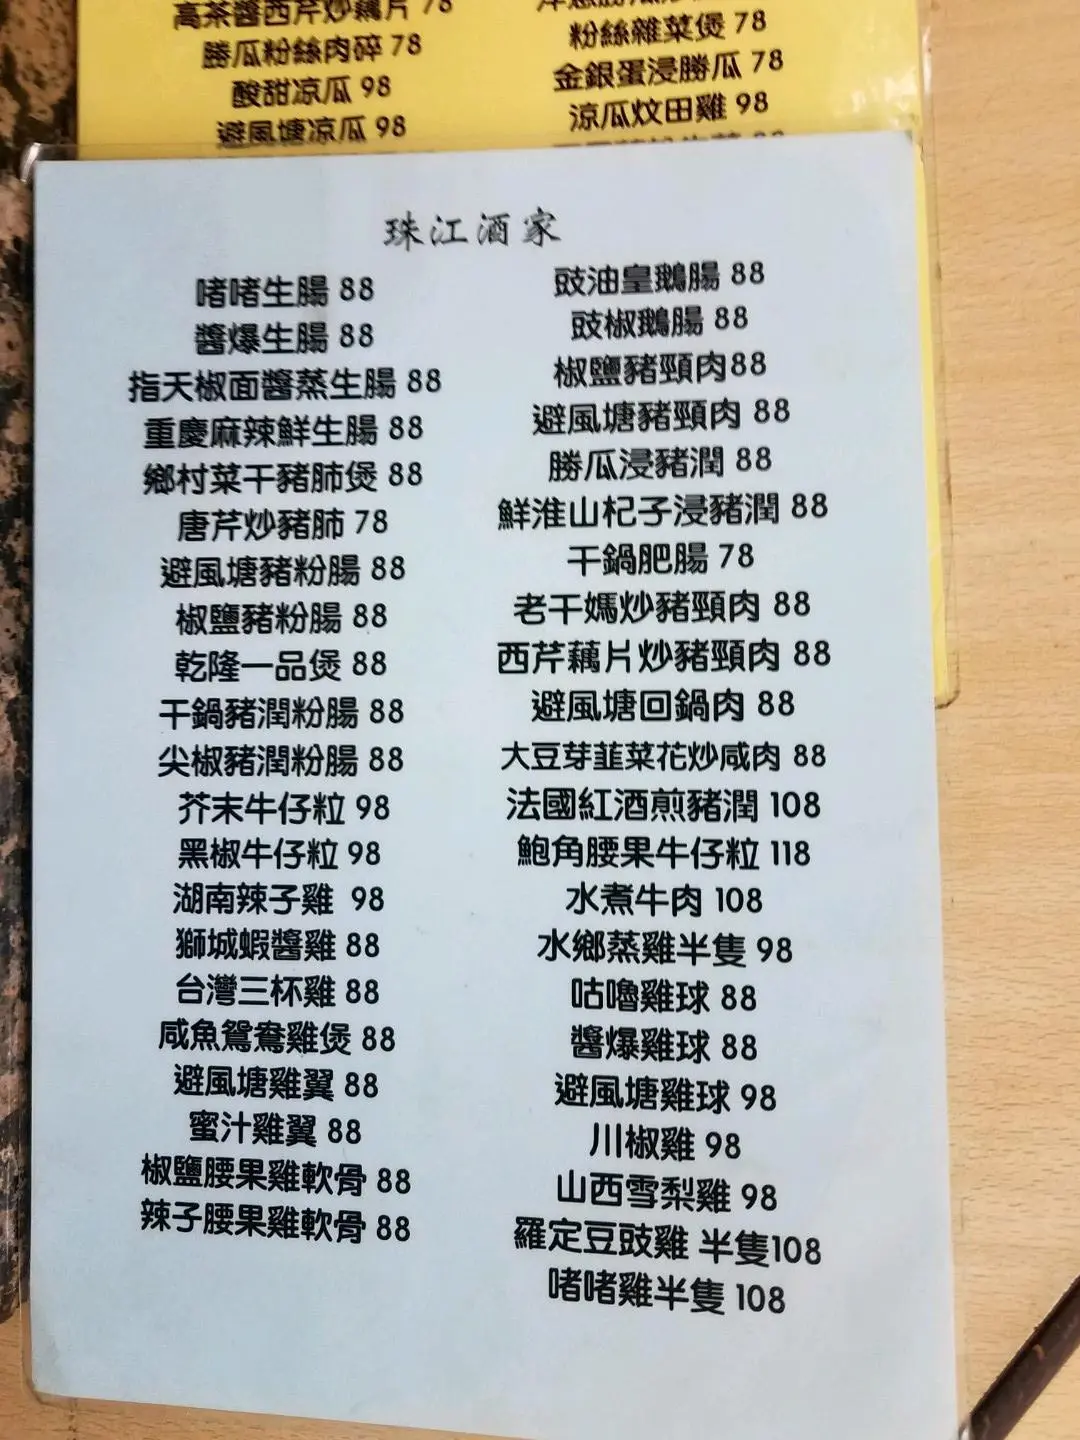 高茶醬西芹炒藕片 78
勝瓜粉絲肉碎 78
酸甜凉瓜 98
避風塘凉瓜 98
粉絲雜菜煲 78
金銀蛋浸勝瓜 78
涼瓜炆田雞 98
珠江酒家
啫啫生腸 88
醬爆生腸 88
指天椒面醬蒸生腸 88
重慶麻辣鮮生腸 88
鄉村菜干豬肺煲 88
唐芹炒豬肺 78
避風塘豬粉腸 88
椒鹽豬粉腸 88
乾隆一品煲 88
干鍋豬潤粉腸 88
尖椒豬潤粉腸 88
芥末牛仔粒 98
黑椒牛仔粒 98
湖南辣子雞 98
獅城蝦醬雞 88
台灣三杯雞 88
咸魚鴛鴦雞煲 88
避風塘雞翼 88
蜜汁雞翼 88
椒鹽腰果雞軟骨 88
辣子腰果雞軟骨 88
豉油皇鵝腸 88
豉椒鵝腸 88
椒鹽豬頸肉88
避風塘豬頸肉 88
勝瓜浸豬潤 88
鮮淮山杞子浸豬潤 88
干鍋肥腸 78
老干媽炒豬頸肉 88
西芹藕片炒豬頸肉 88
避風塘回鍋肉 88
大豆芽韮菜花炒咸肉 88
法國紅酒煎豬潤 108
鮑角腰果牛仔粒 118
水煮牛肉 108
水鄉蒸雞半隻 98
咕嚕雞球 88
醬爆雞球 88
避風塘雞球 98
川椒雞 98
山西雪梨雞 98
羅定豆豉雞 半隻108
啫啫雞半隻 108